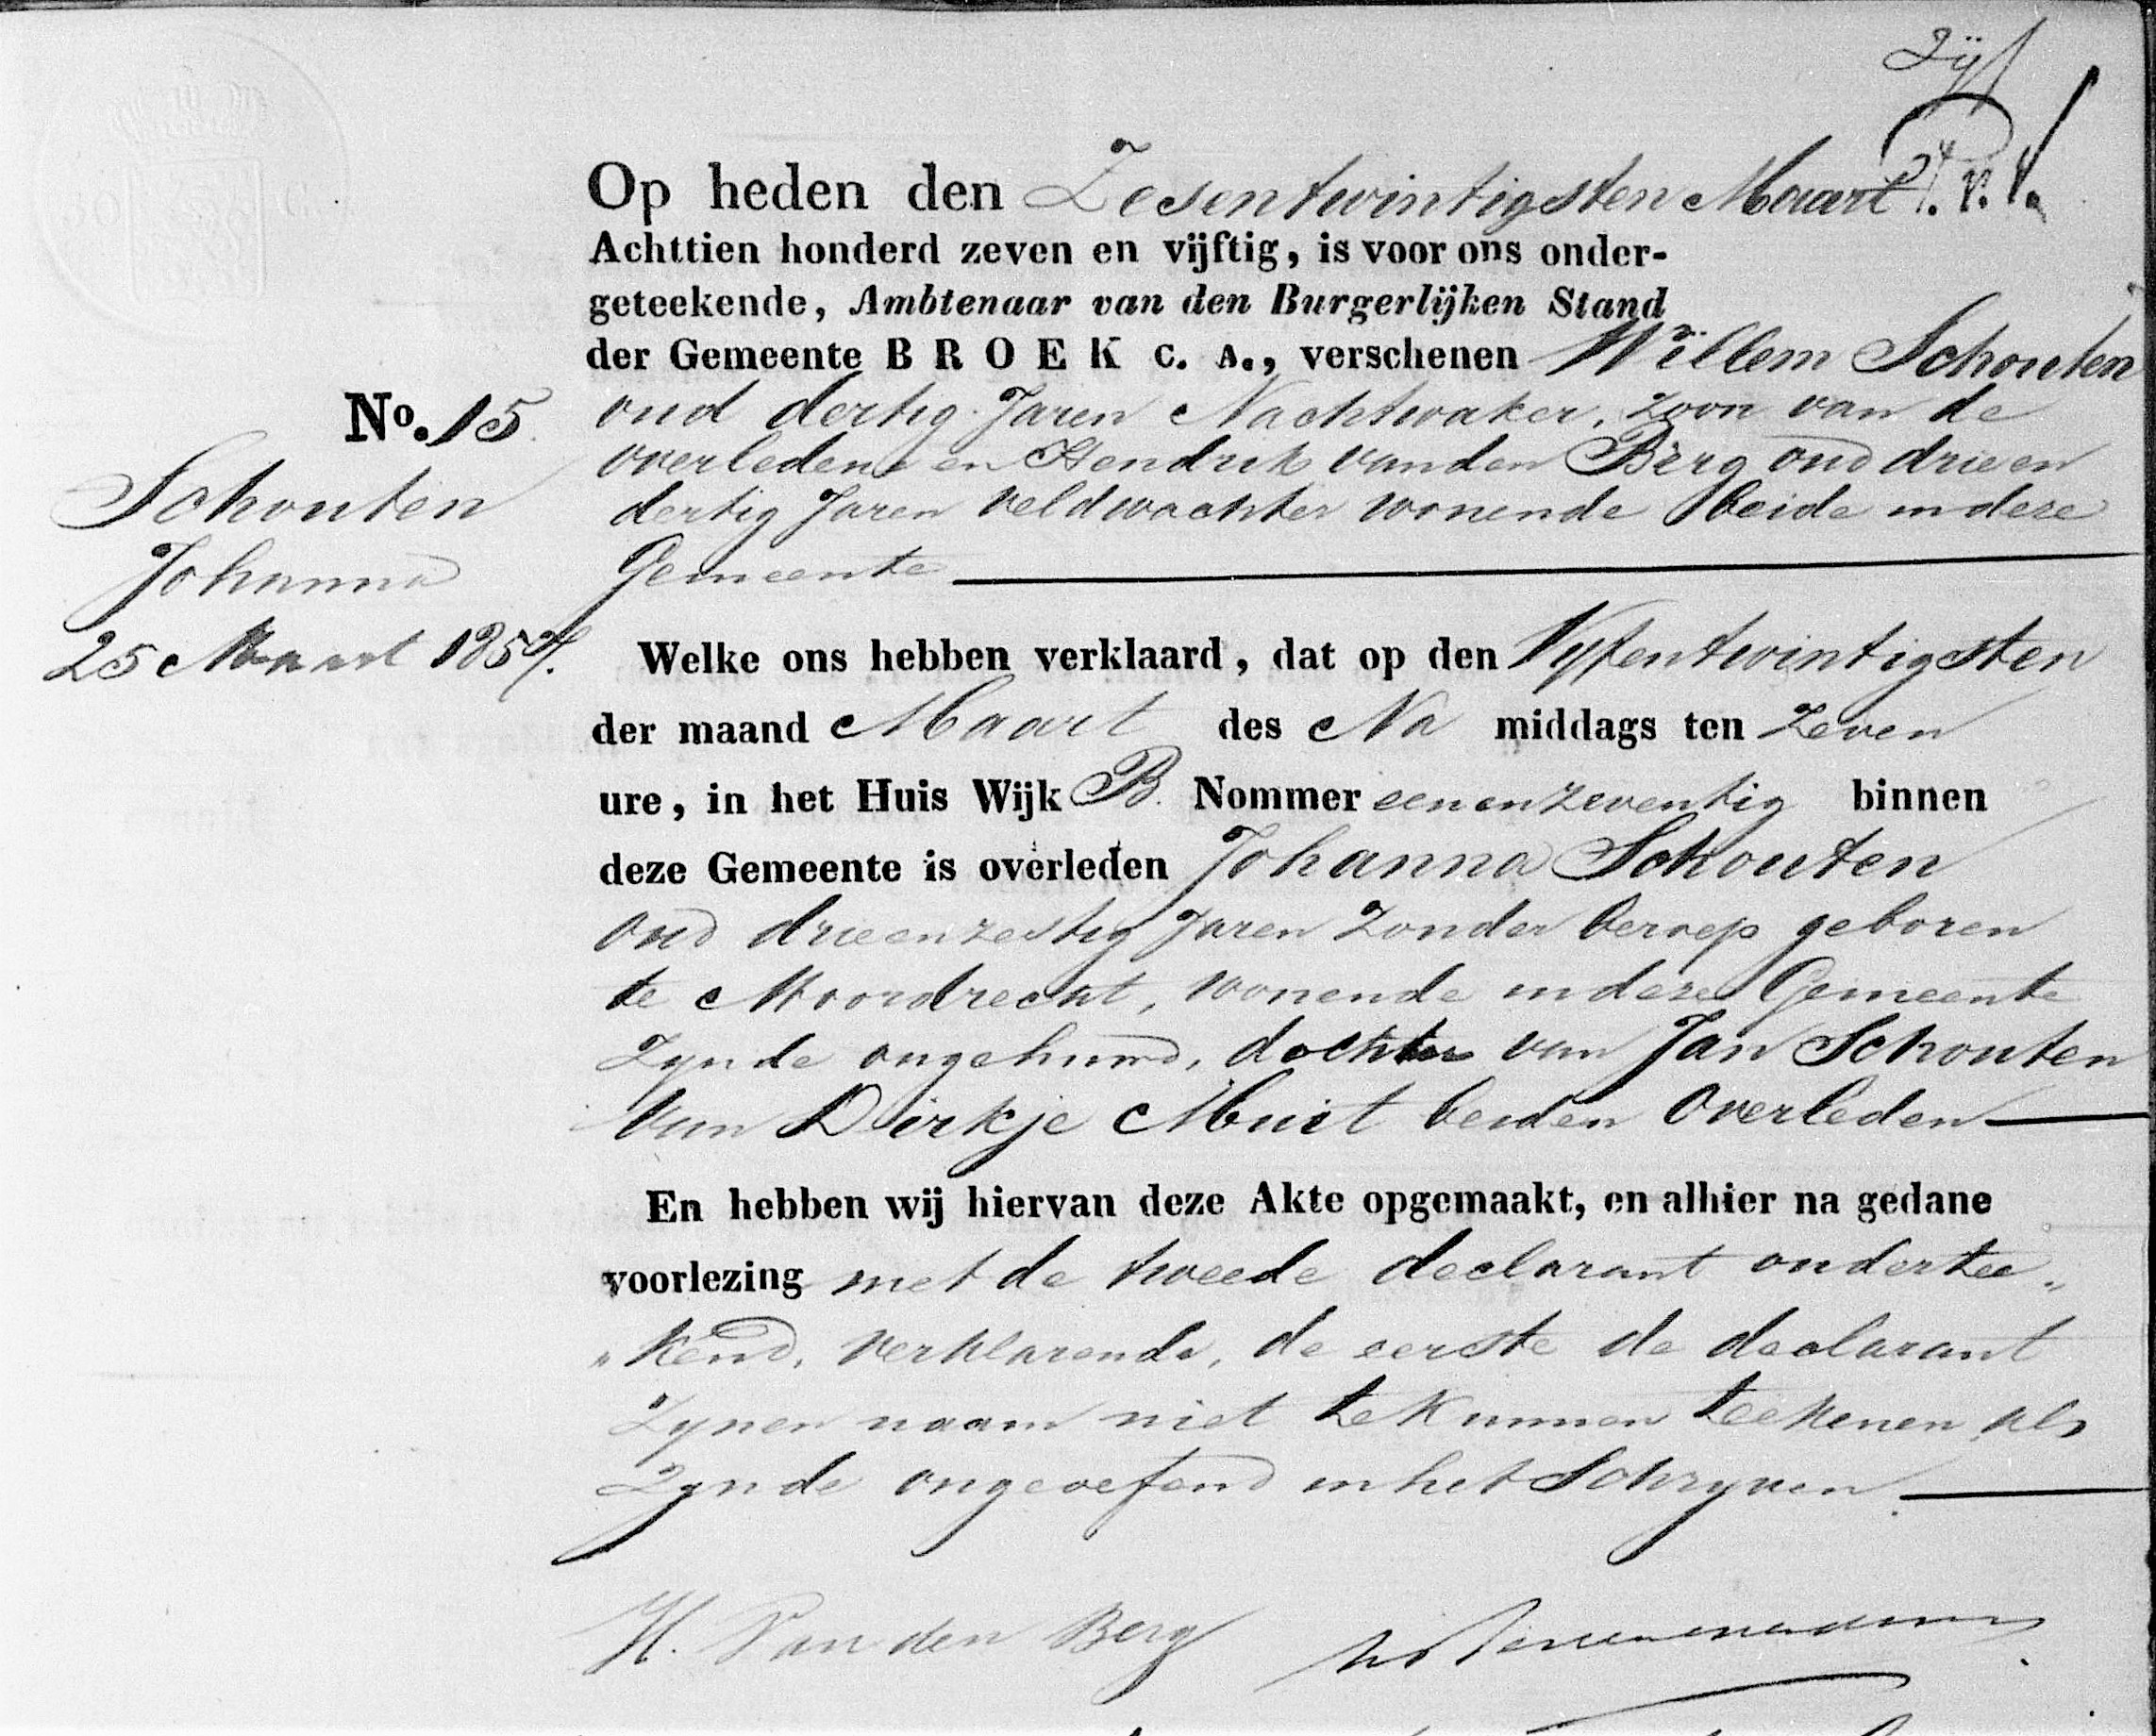 Vijf
Op heden den Zesentwintigsten Maart
Achttien honderd zeven en vijftig, is voor ons onder-
geteekende, Ambtenaar van den Burgerlijken Stand
der Gemeente BROEK C. A., verschenen Willem Schouten
No. 15 oud dertig Jaren Nachtwaker, zoon van de
overledene en Hendrik van den Berg oud drie en
Schouten dertig Jaren veldwachter wonende beide in deze
Johanna Gemeente
25 Maart 1857. Welke ons hebben verklaard, dat op den Vyfentwintigsten
der maand Maart des Na middags ten Zeven
ure, in het Huis Wijk B. Nommer eenenzeventig binnen
deze Gemeente is overleden Johanna Schouten
oud drieenzestig Jaren Zonder beroep geboren
te Moordrecht, wonende in deze Gemeente
Zynde ongehuwd, dochter van Jan Schouten
van Dirkje Muit beiden Overleden
En hebben wij hiervan deze Akte opgemaakt, en alhier na gedane
voorlezing met de tweede declarant ondertee„
„kend, verklarende, de eerste de declarant
Zynen naam niet te kunnen teekenen als
Zynde ongeoefend in het Schryven
H. Van den Berg